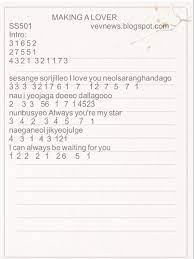 MAKING A LOVER
SS501 vevnews.blogspot.com
Intro:
3 1 6 5 2
2 7 5 5 1
4 3 2 1 3 2 1 1 7 3
sesange sorijilleo I love you neolsaranghandago
3 3 3 3 2 1 7 6 1 1 7 1 2 7 5 7 1
nau i yeojaga doeeo dallagooo
2 2 3 3 5 6 1 7 1 4 5 2 3
nunbusyeo Always you're my star
3 4 3 2 2 1 7 1 7 1
naeganeol jikyeojulge
4 3 1 3 2 1 2 1
I can always be waiting for you
1 2 2 2 1 2 6 5 1